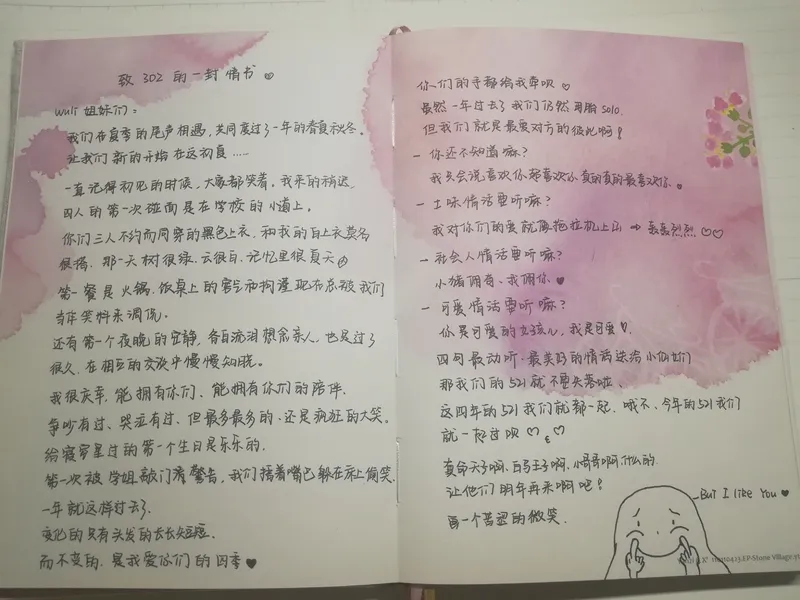 致 302 的一封情书
wuli 姐妹们：
我们在夏季的尾声相遇，共同度过了一年的春夏秋冬。
让我们新的开始在这初夏……
一直记得初见的时候，大家都笑着，我来的稍迟
四人的第一次碰面是在学校的小道上。
你们三人不约而同穿的黑色上衣，和我的白上衣莫名
很搭，那一天树很绿，云很白，记忆里很夏天
第一餐是火锅，饭桌上的客气和拘谨现在总被我们
当作笑料来调侃。
还有第一个夜晚的安静，各自流泪想念亲人，也是过了
很久，在相互的交谈中慢慢知晓。
我很庆幸，能拥有你们、能拥有你们的陪伴
争吵有过、哭泣有过、但最多最多的，还是疯狂的大笑。
给寝室里过的第一个生日是乐乐的.
第一次被学姐敲门声警告，我们捂着嘴巴躲在床上偷笑.
一年就这样过去了.
变化的只有头发的长长短短
而不变的，是我爱你们的四季♥
你们的手都给我牵呗
虽然一年过去了我们仍然母胎 solo.
但我们就是最爱对方的彼此啊！
- 你还不知道嘛？
我只会说喜欢你都喜欢你真的真的最喜欢你.
- 土味情话要听嘛？
我对你们的爱就像拖拉机上山 ⇒ 轰轰烈烈 ♡♡
- 社会人情话要听嘛？
小猪佩奇、我俩你 ♥
- 可爱情话要听嘛？
你是可爱的女孩儿，我是可爱
四句最动听、最美好的情话送给小仙女们
那我们的521就不要失落啦、
这四年的521我们就都一起、哦不、今年的521我们
就一起过呗 ♡ ♡
真命天子啊、白马王子啊、小哥哥啊、什么的.
让他们明年再来啊吧！
留一个苦涩的微笑
But I like You ♥
EP·Stone Village